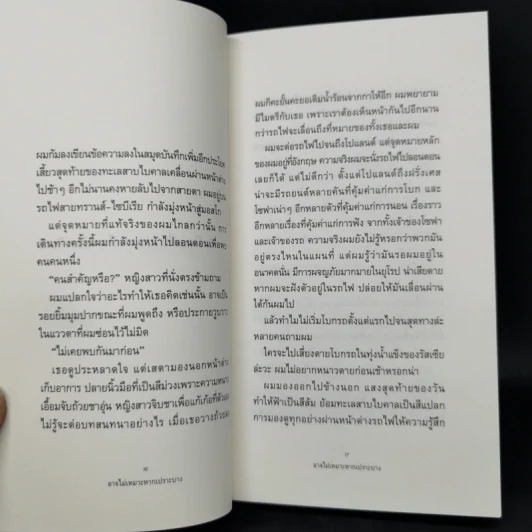 ผมก้มลงเขียนข้อความลงในสมุดบันทึกเพิ่มอีกประโยค
เสี้ยวสุดท้ายของทะเลสาบไบคาลเคลื่อนผ่านหน้าต่าง
ไปช้าๆ อีกไม่นานคงหายลับไปจากสายตา ผมอยู่บน
รถไฟสายทรานส์-ไซบีเรีย กำลังมุ่งหน้าสู่มอสโก
แต่จุดหมายที่แท้จริงของผมไกลกว่านั้น การ
เดินทางครั้งนี้ผมกำลังมุ่งหน้าไปลอนดอนเพื่อพบ
คนคนหนึ่ง
“คนสำคัญหรือ?” หญิงสาวที่นั่งตรงข้ามถาม
ผมแปลกใจว่าอะไรทำให้เธอคิดเช่นนั้น อาจเป็น
รอยยิ้มมุมปากขณะที่ผมพูดถึง หรือประกายวูบวาบ
ในแววตาที่ผมซ่อนไว้ไม่มิด
“ไม่เคยพบกันมาก่อน”
เธอดูประหลาดใจ แต่เสตามองนอกหน้าต่าง
เก็บอาการ ปลายนิ้วมือที่เป็นสีม่วงเพราะความหนาว
เอื้อมจับถ้วยชาอุ่น หญิงสาวจิบชาเพื่อแก้เก้อที่ตัวเอง
ไม่รู้จะต่อบทสนทนาอย่างไร เมื่อเธอวางถ้วยลง
๑๖
อาจไม่เหมาะหากเปราะบาง
ผมก็คะยั้นคะยอเติมน้ำร้อนจากกาให้อีก ผมพยายาม
มีไมตรีกับเธอ เพราะเราต้องเห็นหน้ากันไปอีกนาน
กว่ารถไฟจะเลื่อนถึงที่หมายของทั้งเธอและผม
ผมจะต่อรถไฟไปจนถึงโปแลนด์ แต่จุดหมายหลัก
ของผมอยู่ที่อังกฤษ ความจริงผมจะนั่งรถไฟไปลอนดอน
เลยก็ได้ แต่ไม่ดีกว่า ตั้งแต่โปแลนด์ถึงฝรั่งเศส
น่าจะมีรถยนต์หลายคันที่คุ้มค่าแก่การโบก และ
โซฟาเน่าๆ อีกหลายตัวที่คุ้มค่าแก่การนอน เรื่องราว
อีกหลายเรื่องที่คุ้มค่าแก่การฟัง จากทั้งเจ้าของโซฟา
และเจ้าของรถ ความจริงผมยังไม่รู้หรอกว่าพวกมัน
อยู่ตรงไหนในแผนที่ แต่ผมรู้ว่ามันรอผมอยู่ใน
อนาคตนั้น มีการผจญภัยมากมายในยุโรป น่าเสียดาย
หากผมจะฝังตัวอยู่ในรถไฟ ปล่อยให้มันเลื่อนผ่าน
ใต้ก้นผมไป
แล้วทำไมไม่เริ่มโบกรถตั้งแต่แรกไปจนสุดทางล่ะ
หลายคนถามผม
ใครจะไปเสี่ยงตายโบกรถในทุ่งน้ำแข็งของรัสเซีย
ล่ะวะ ผมไม่อยากหนาวตายก่อนเข้าหรอกน่า
ผมมองออกไปข้างนอก แสงสุดท้ายของวัน
ทำให้ฟ้าเป็นสีส้ม ย้อมทะเลสาบไบคาลเป็นสีแปลก
การมองดูทุกอย่างผ่านหน้าต่างรถไฟให้ความรู้สึก
๑๗
อาจไม่เหมาะหากเปราะบาง